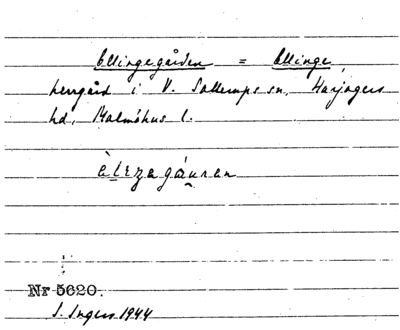 Ellingegården = Ellinge,
herrgård i V. Sallerups sn, Harjagers
hd, Malmöhus l.
Nr 5620.
I. Ingers 1944